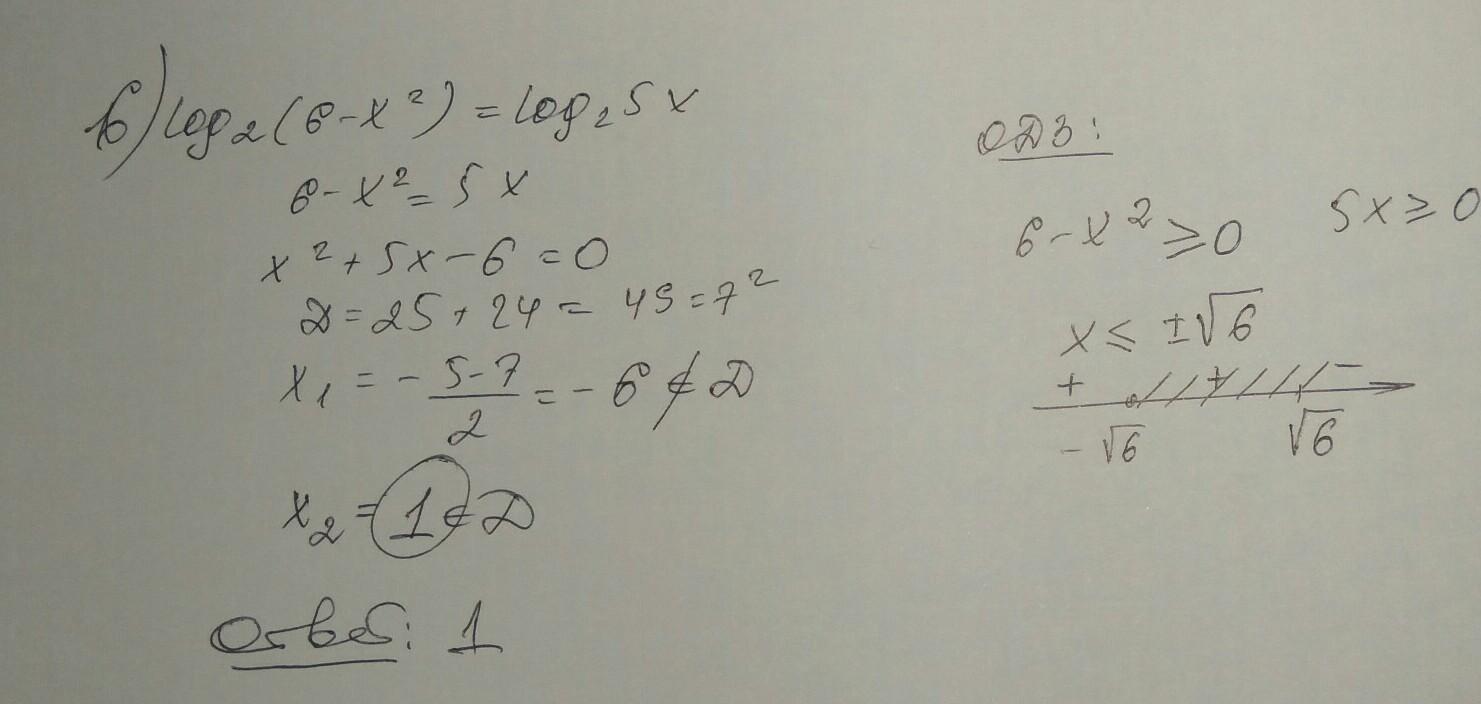 б) log₂(6-x²) = log₂5x
6-x² = 5x
x² + 5x - 6 = 0
D = 25 + 24 = 49 = 7²
x₁ = -\frac{5-7}{2} = -6 ∉ D
x₂ = 1 ∈ D
Ответ: 1
ОДЗ:
6-x² ≥ 0 5x ≥ 0
x ≤ ±√6
+ + -
-√6 √6